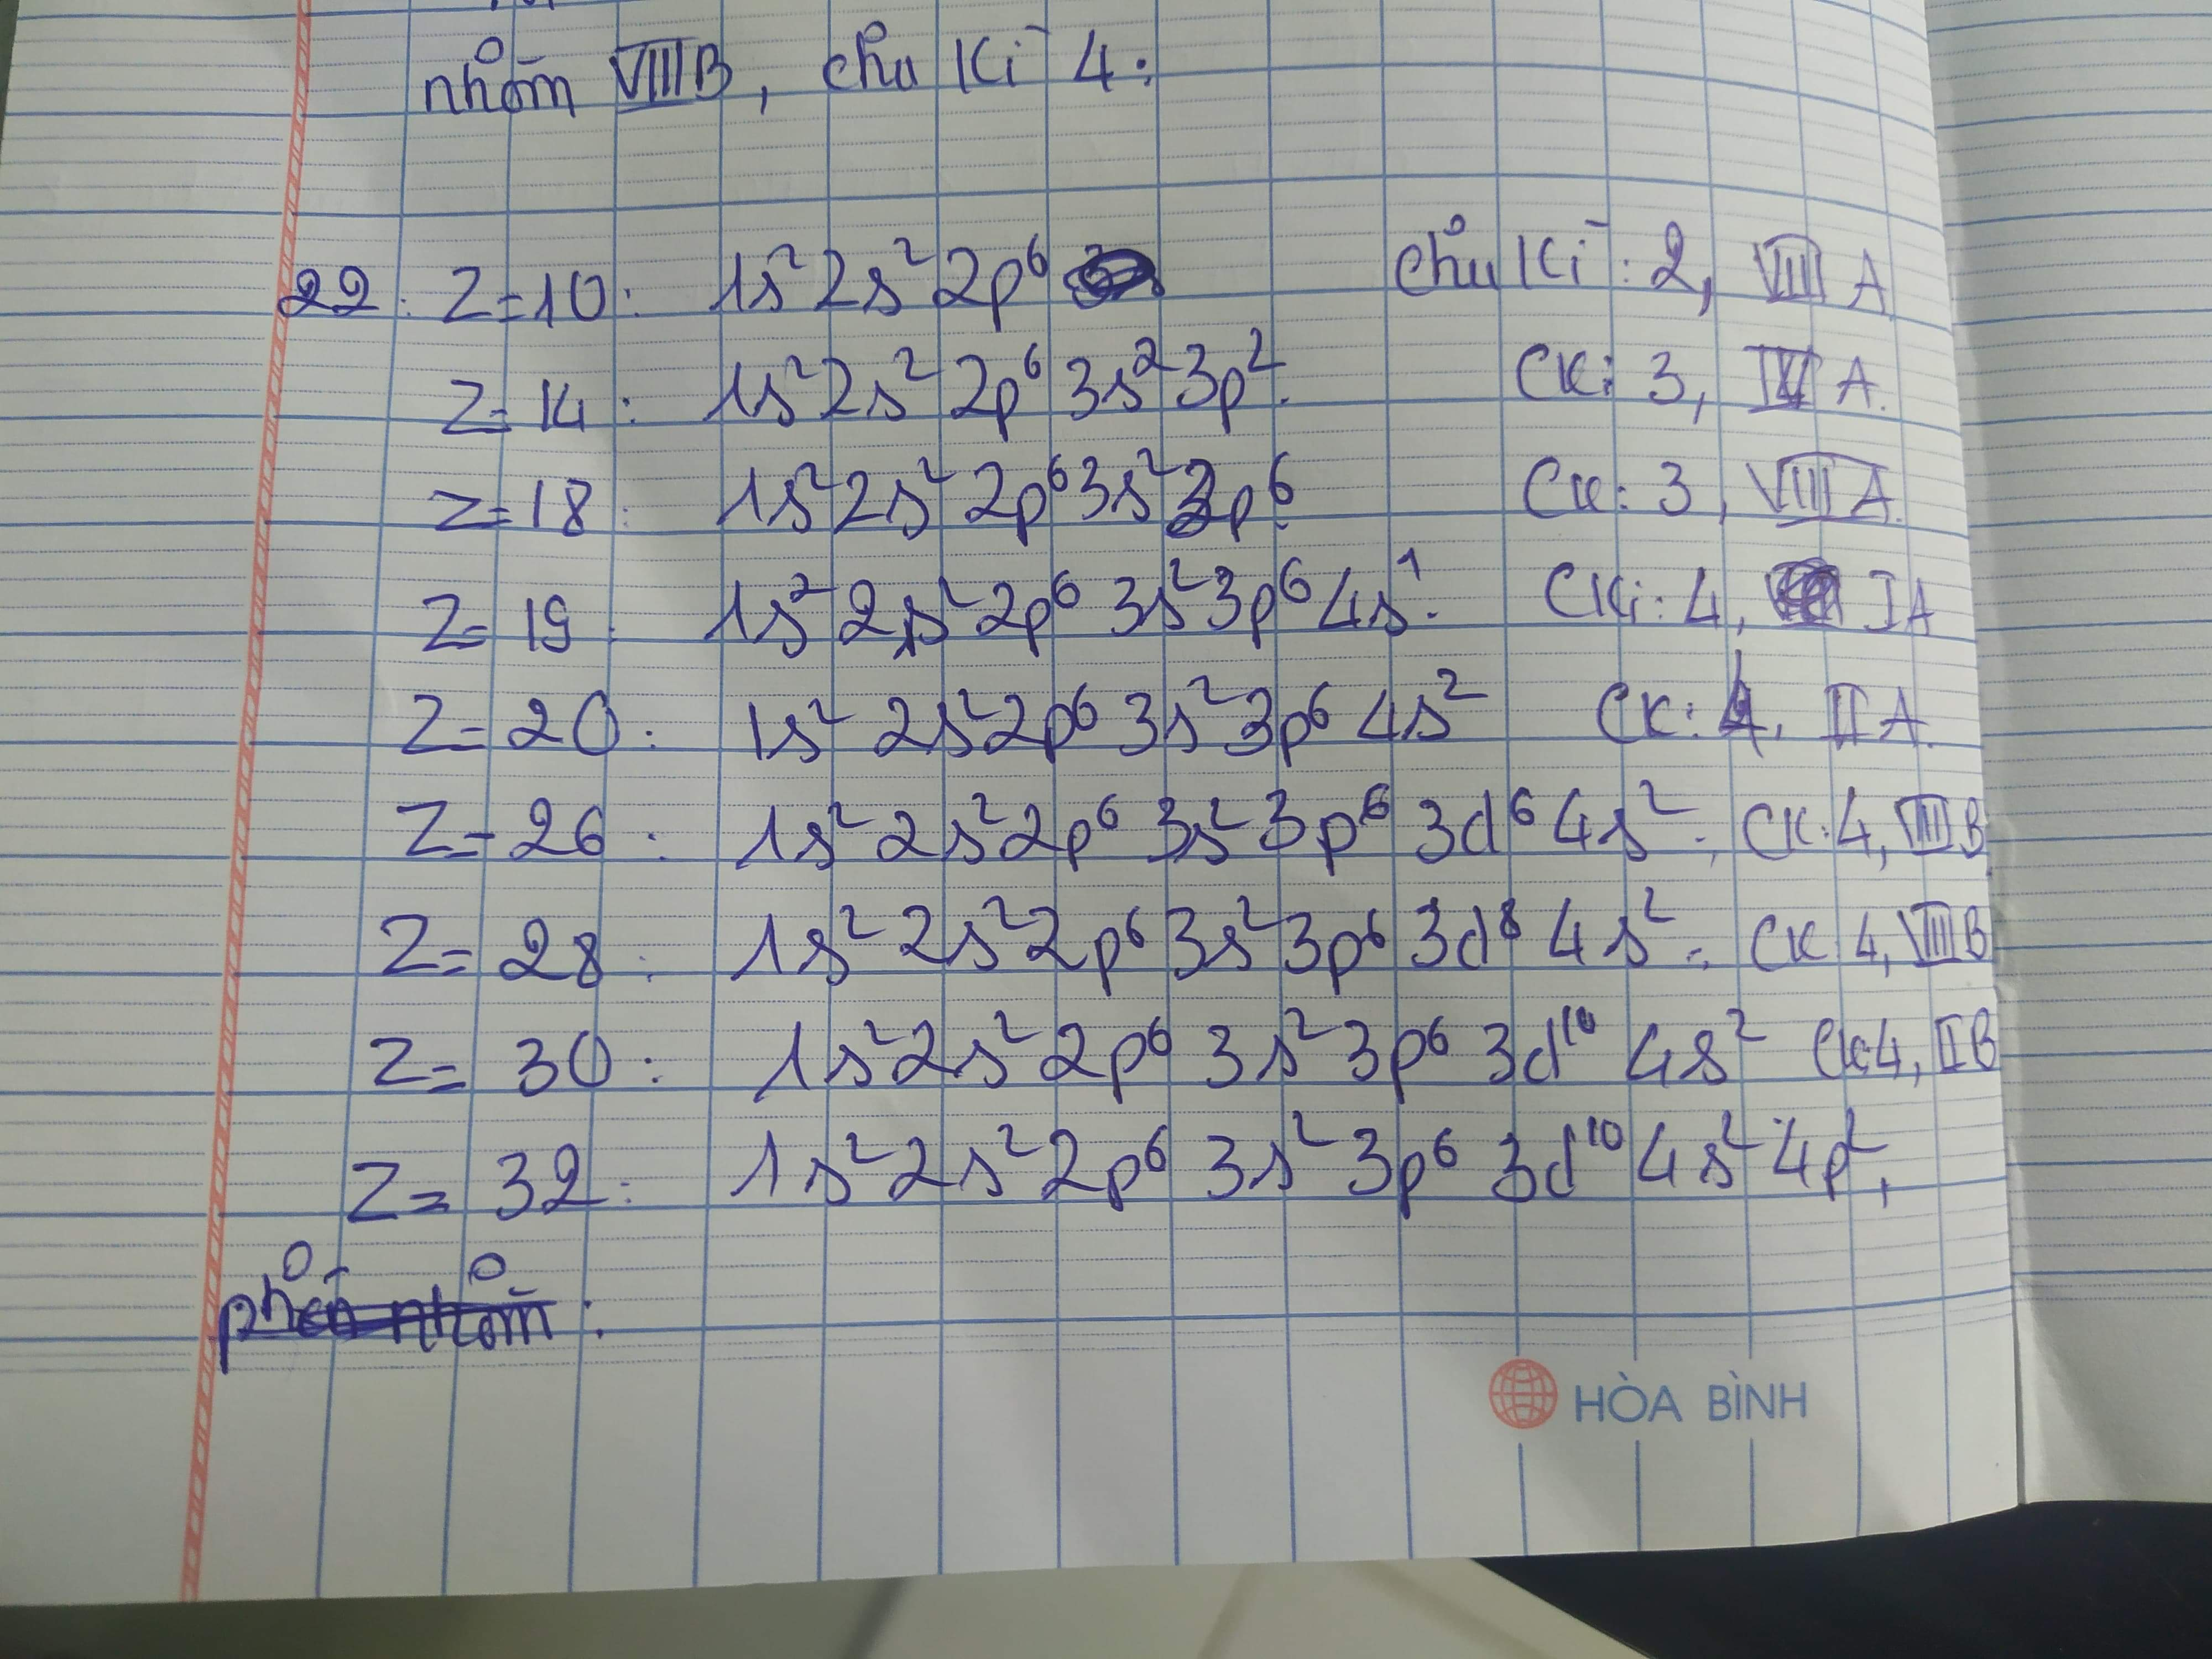 nhóm VIIIB, chu Kì 4:
22: Z=10: 1s² 2s² 2p⁶ chu Kì: 2, VIII A
Z=14: 1s² 2s² 2p⁶ 3s² 3p². CK: 3, IV A.
Z=18: 1s² 2s² 2p⁶ 3s² 3p⁶ CK: 3, VIII A.
Z=19: 1s² 2s² 2p⁶ 3s² 3p⁶ 4s¹. CKì: 4, IA
Z=20: 1s² 2s² 2p⁶ 3s² 3p⁶ 4s² CK: 4, II A.
Z=26: 1s² 2s² 2p⁶ 3s² 3p⁶ 3d⁶ 4s²; CK: 4, VIII B
Z=28: 1s² 2s² 2p⁶ 3s² 3p⁶ 3d⁸ 4s²; CK 4, VIII B
Z=30: 1s² 2s² 2p⁶ 3s² 3p⁶ 3d¹⁰ 4s² CK4, II B
Z=32: 1s² 2s² 2p⁶ 3s² 3p⁶ 3d¹⁰ 4s² 4p²,
HÒA BÌNH